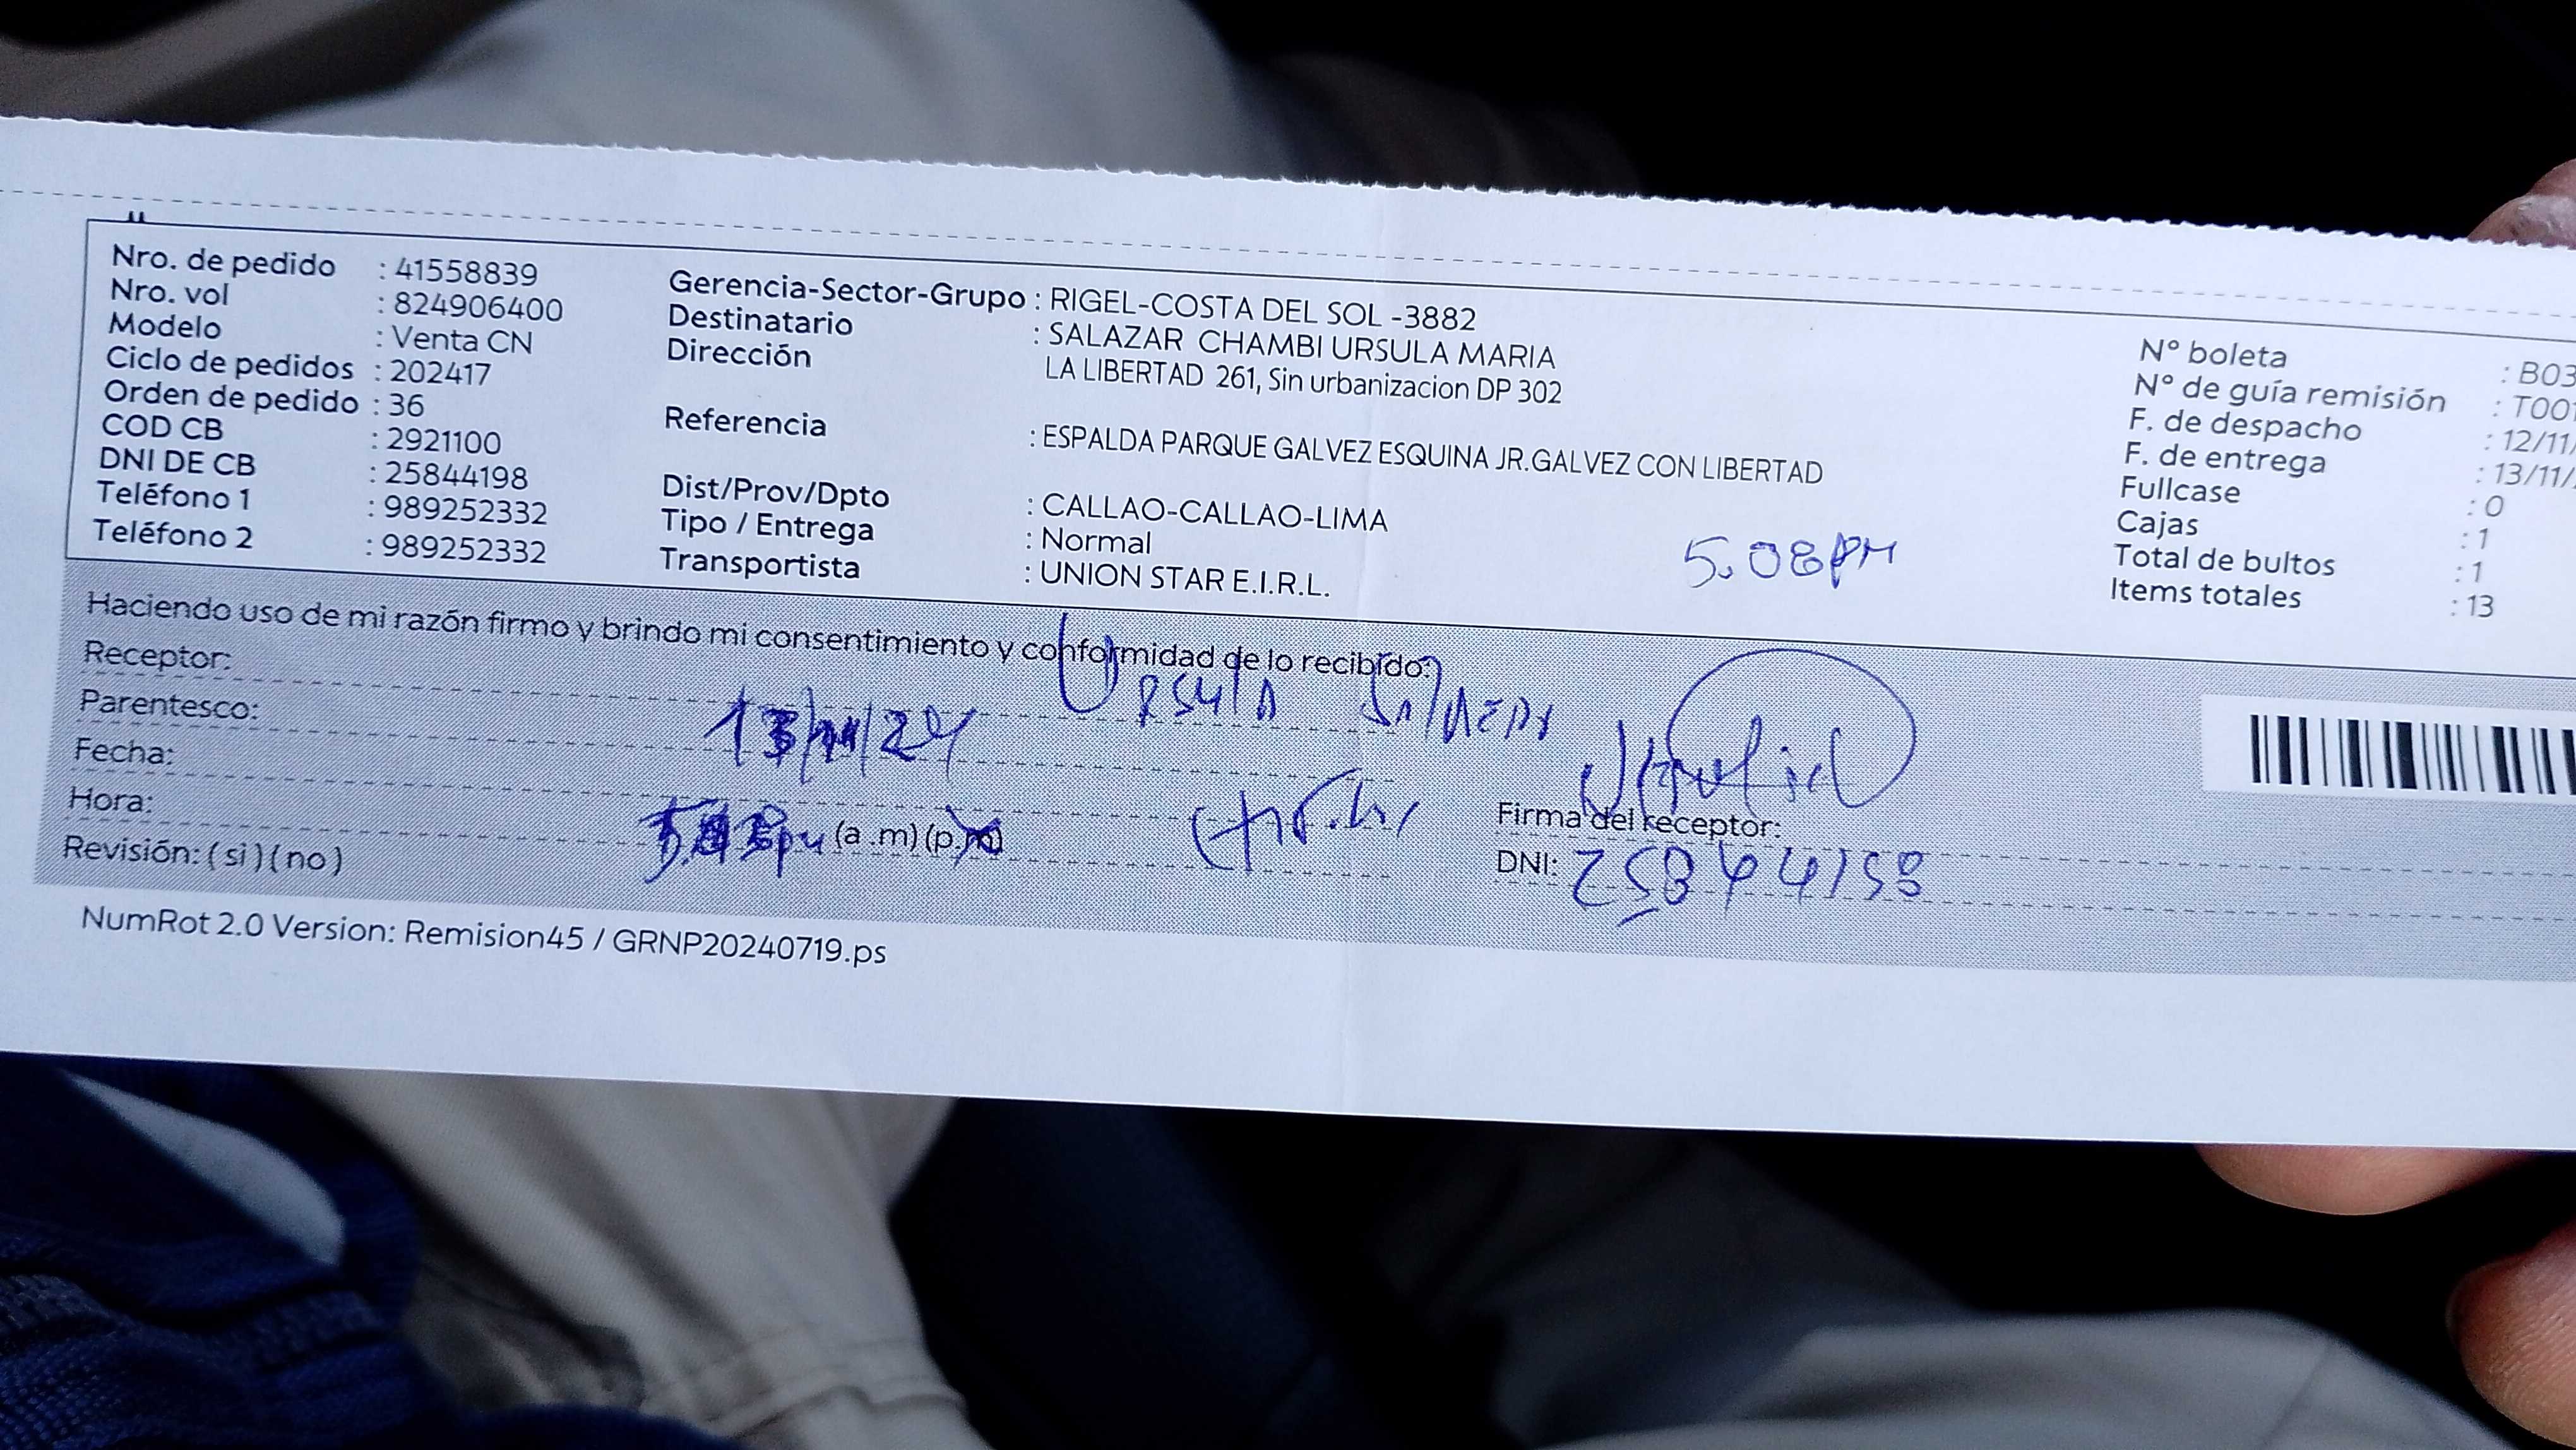 Nro. de pedido : 41558839
Nro. vol : 824906400
Modelo : Venta CN
Ciclo de pedidos : 202417
Orden de pedido : 36
COD CB : 2921100
DNI DE CB : 25844198
Teléfono 1 : 989252332
Teléfono 2 : 989252332
Gerencia-Sector-Grupo : RIGEL-COSTA DEL SOL -3882
Destinatario : SALAZAR CHAMBI URSULA MARIA
Dirección LA LIBERTAD 261, Sin urbanizacion DP 302
Referencia : ESPALDA PARQUE GALVEZ ESQUINA JR.GALVEZ CON LIBERTAD
Dist/Prov/Dpto : CALLAO-CALLAO-LIMA
Tipo / Entrega : Normal
Transportista : UNION STAR E.I.R.L.
5.08PM
N° boleta : B03
N° de guía remisión : T001
F. de despacho : 12/11/
F. de entrega : 13/11/
Fullcase : 0
Cajas : 1
Total de bultos : 1
Items totales : 13
Haciendo uso de mi razón firmo y brindo mi consentimiento y conformidad de lo recibido:
Receptor: Ursula Salazar
Parentesco:
Fecha: 13/11/24
Hora: (a .m) (p.m)
Revisión: ( sì ) ( no )
Firma del receptor:
DNI: 25844198
NumRot 2.0 Version: Remision45 / GRNP20240719.ps